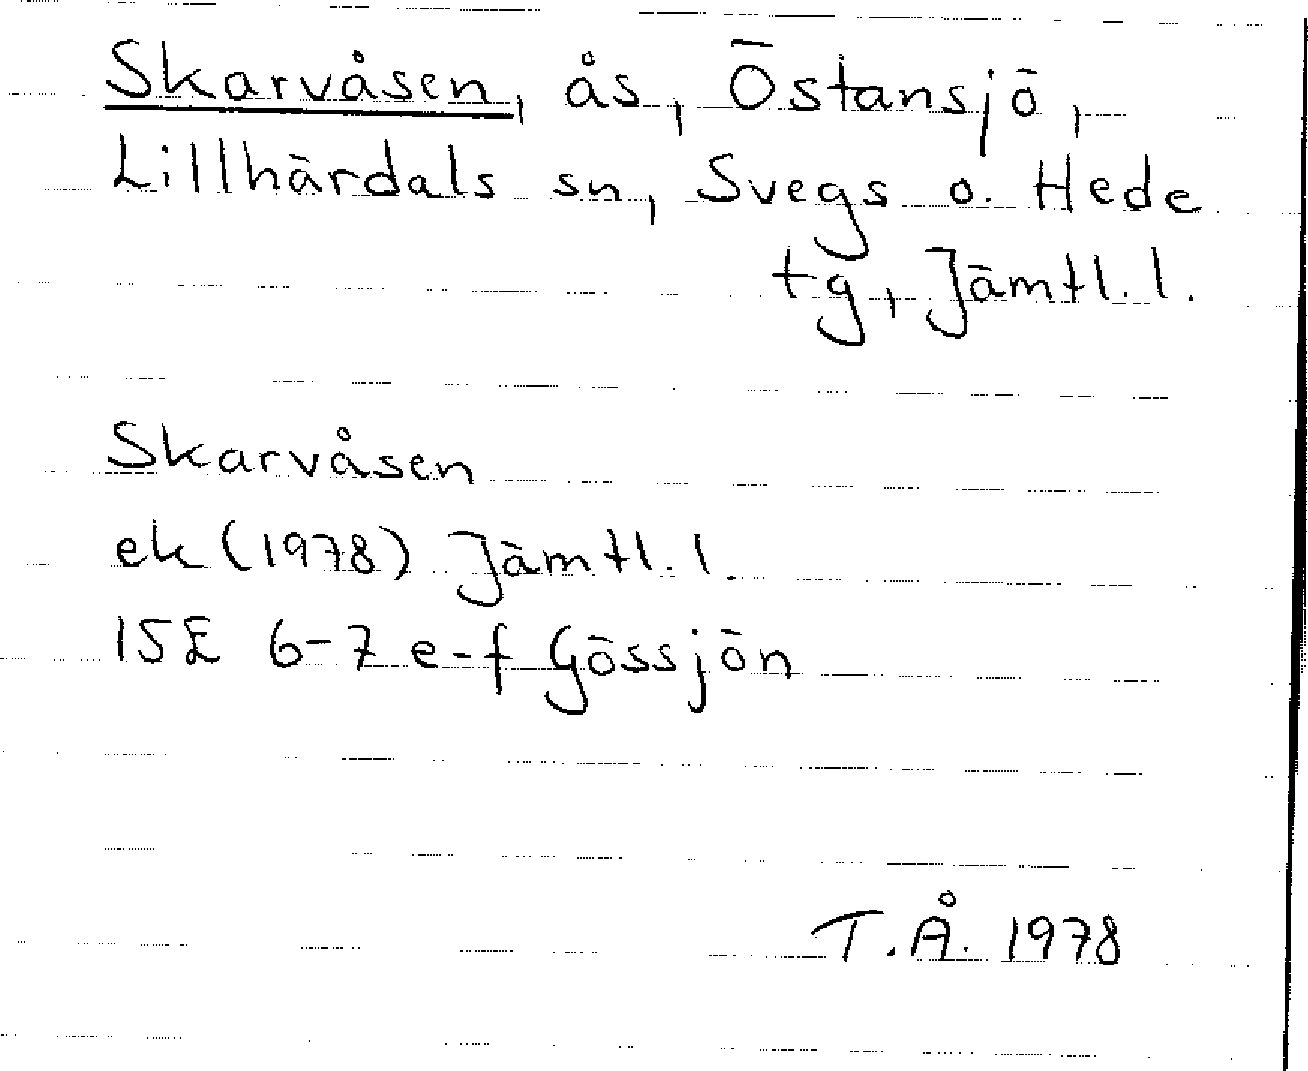 Skarvåsen, ås, Östansjö,
Lillhärdals sn, Svegs o. Hede
tg, Jämtl. l.
Skarvåsen
ek (1978) Jämtl. l.
15E 6-7 e-f Gössjön
T.Å. 1978